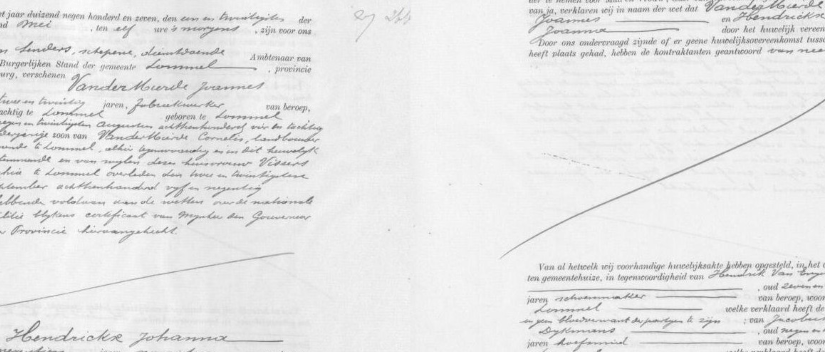 et jaar duizend negen honderd en zeven, den een en twintigsten der
nd Mei , ten elf ure 's morgens , zijn voor ons
n Sanders, schepene, dienstdoende
Ambtenaar van
Burgerlijken Stand der gemeente Lommel , provincie
burg, verschenen VanderMierde Joannes
twee en twintig jaren, fabriekwerker van beroep,
achtig te Lommel geboren te Lommel
negen en twintigsten Augustus achttienhonderd vier en tachtig
jarige zoon van VanderMierde Cornelis, landbouwer
wonende te Lommel, alhier tegenwoordig en in dit huwelijk
stemmende en van wijlen dezes huisvrouw Vissers
te Lommel overleden den twee en twintigsten
ptember achttienhonderd vijf en negentig
hebbende voldaan aan de wetten over de nationale
militie blijkens certificaat van Mijnheer den Gouverneur
r Provincie hieraangehecht.
Hendrickx Johanna
27
van ja, verklaren wij in naam der wet dat VanderMierde
Joannes en Hendrickx
Joanna door het huwelijk vereen
Door ons ondervraagd zijnde of er geene huwelijksovereenkomst tussc
heeft plaats gehad, hebben de kontraktanten geantwoord van nee
Van al hetwelk wij voorhandige huwelijksakte hebben opgesteld, in het
ten gemeentehuize, in tegenwoordigheid van Hendrik Van
, oud zeven en
jaren schoenmaker van beroep, woon
Lommel welke verklaard heeft de
en geen bloedverwant der partijen te zijn ; van Jacobus
Dykmans , oud negen en
jaren hoefsmid van beroep, woo
welke verklaard heeft d